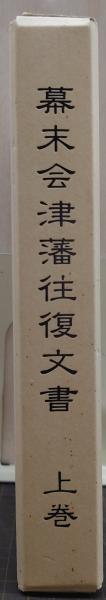 幕末会津藩往復文書 上巻